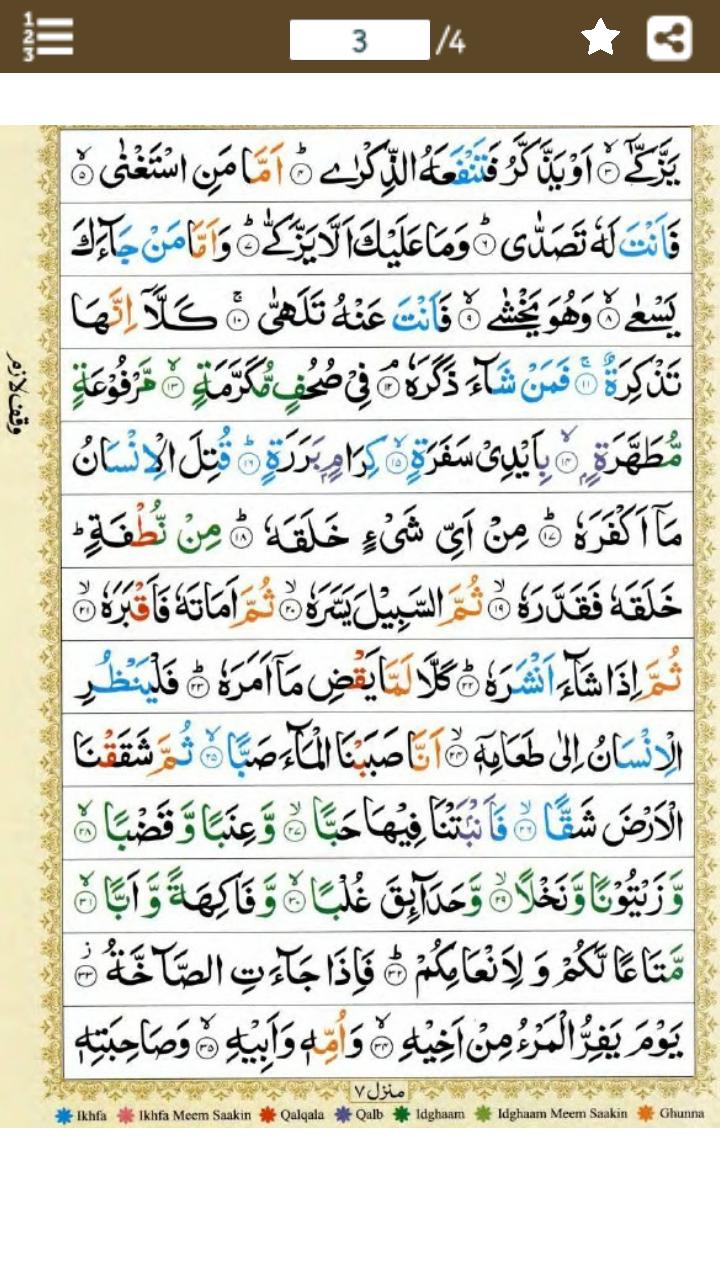 1
2
3
3 /4
يَزَّكّٰٓى ۙ‏﴿۳﴾ اَوۡ يَذَّكَّرُ فَتَنۡفَعَهُ الذِّكۡرٰى ؕ‏﴿۴﴾ اَمَّا مَنِ اسۡتَغۡنٰىۙ‏﴿۵﴾
فَاَنۡتَ لَهٗ تَصَدّٰىؕ‏﴿۶﴾ وَمَا عَلَيۡكَ اَلَّا يَزَّكّٰىؕ‏﴿۷﴾ وَاَمَّا مَنۡ جَآءَكَ
يَسۡعٰىۙ‏﴿۸﴾ وَهُوَ يَخۡشٰىۙ‏﴿۹﴾ فَاَنۡتَ عَنۡهُ تَلَهّٰى‌ۚ‏﴿۱۰﴾ كَلَّاۤ اِنَّهَا
تَذۡكِرَةٌ ۚ‏﴿۱۱﴾ فَمَنۡ شَآءَ ذَكَرَهٗ‌ۘ‏﴿۱۲﴾ فِىۡ صُحُفٍ مُّكَرَّمَةٍۙ‏﴿۱۳﴾ مَّرۡفُوۡعَةٍ
مُّطَهَّرَةٍ ۢۙ‏﴿۱۴﴾ بِاَيۡدِىۡ سَفَرَةٍۙ‏﴿۱۵﴾ كِرَامٍۢ بَرَرَةٍؕ‏﴿۱۶﴾ قُتِلَ الۡاِنۡسَانُ
مَاۤ اَكۡفَرَهٗؕ‏﴿۱۷﴾ مِنۡ اَىِّ شَىۡءٍ خَلَقَهٗؕ‏﴿۱۸﴾ مِنۡ نُّطۡفَةٍؕ
خَلَقَهٗ فَقَدَّرَهٗ ۙ‏﴿۱۹﴾ ثُمَّ السَّبِيۡلَ يَسَّرَهٗۙ‏﴿۲۰﴾ ثُمَّ اَمَاتَهٗ فَاَقۡبَرَهٗۙ‏﴿۲۱﴾
ثُمَّ اِذَا شَآءَ اَنۡشَرَهٗؕ‏﴿۲۲﴾ كَلَّا لَمَّا يَقۡضِ مَاۤ اَمَرَهٗؕ‏﴿۲۳﴾ فَلۡيَنۡظُرِ
الۡاِنۡسَانُ اِلٰى طَعَامِهٖۤۙ‏﴿۲۴﴾ اَنَّا صَبَبۡنَا الۡمَآءَ صَبًّا ۙ‏﴿۲۵﴾ ثُمَّ شَقَقۡنَا
الۡاَرۡضَ شَقًّا ۙ‏﴿۲۶﴾ فَاَنۡۢبَتۡنَا فِيۡهَا حَبًّا ۙ‏﴿۲۷﴾ وَّ عِنَبًا وَّقَضۡبًا ۙ‏﴿۲۸﴾
وَّزَيۡتُوۡنًا وَّنَخۡلًا ۙ‏﴿۲۹﴾ وَّحَدَآئِقَ غُلۡبًا ۙ‏﴿۳۰﴾ وَّفَاكِهَةً وَّاَبًّا ۙ‏﴿۳۱﴾
مَّتَاعًا لَّكُمۡ وَلِاَنۡعَامِكُمۡؕ‏﴿۳۲﴾ فَاِذَا جَآءَتِ الصَّآخَّةُ ز﴿۳۳﴾
يَوۡمَ يَفِرُّ الۡمَرۡءُ مِنۡ اَخِيۡهِۙ‏﴿۳۴﴾ وَاُمِّهٖ وَاَبِيۡهِۙ‏﴿۳۵﴾ وَصَاحِبَتِهٖ
وقف لازم
منزل ۷
Ikhfa Ikhfa Meem Saakin Qalqala Qalb Idghaam Idghaam Meem Saakin Ghunna